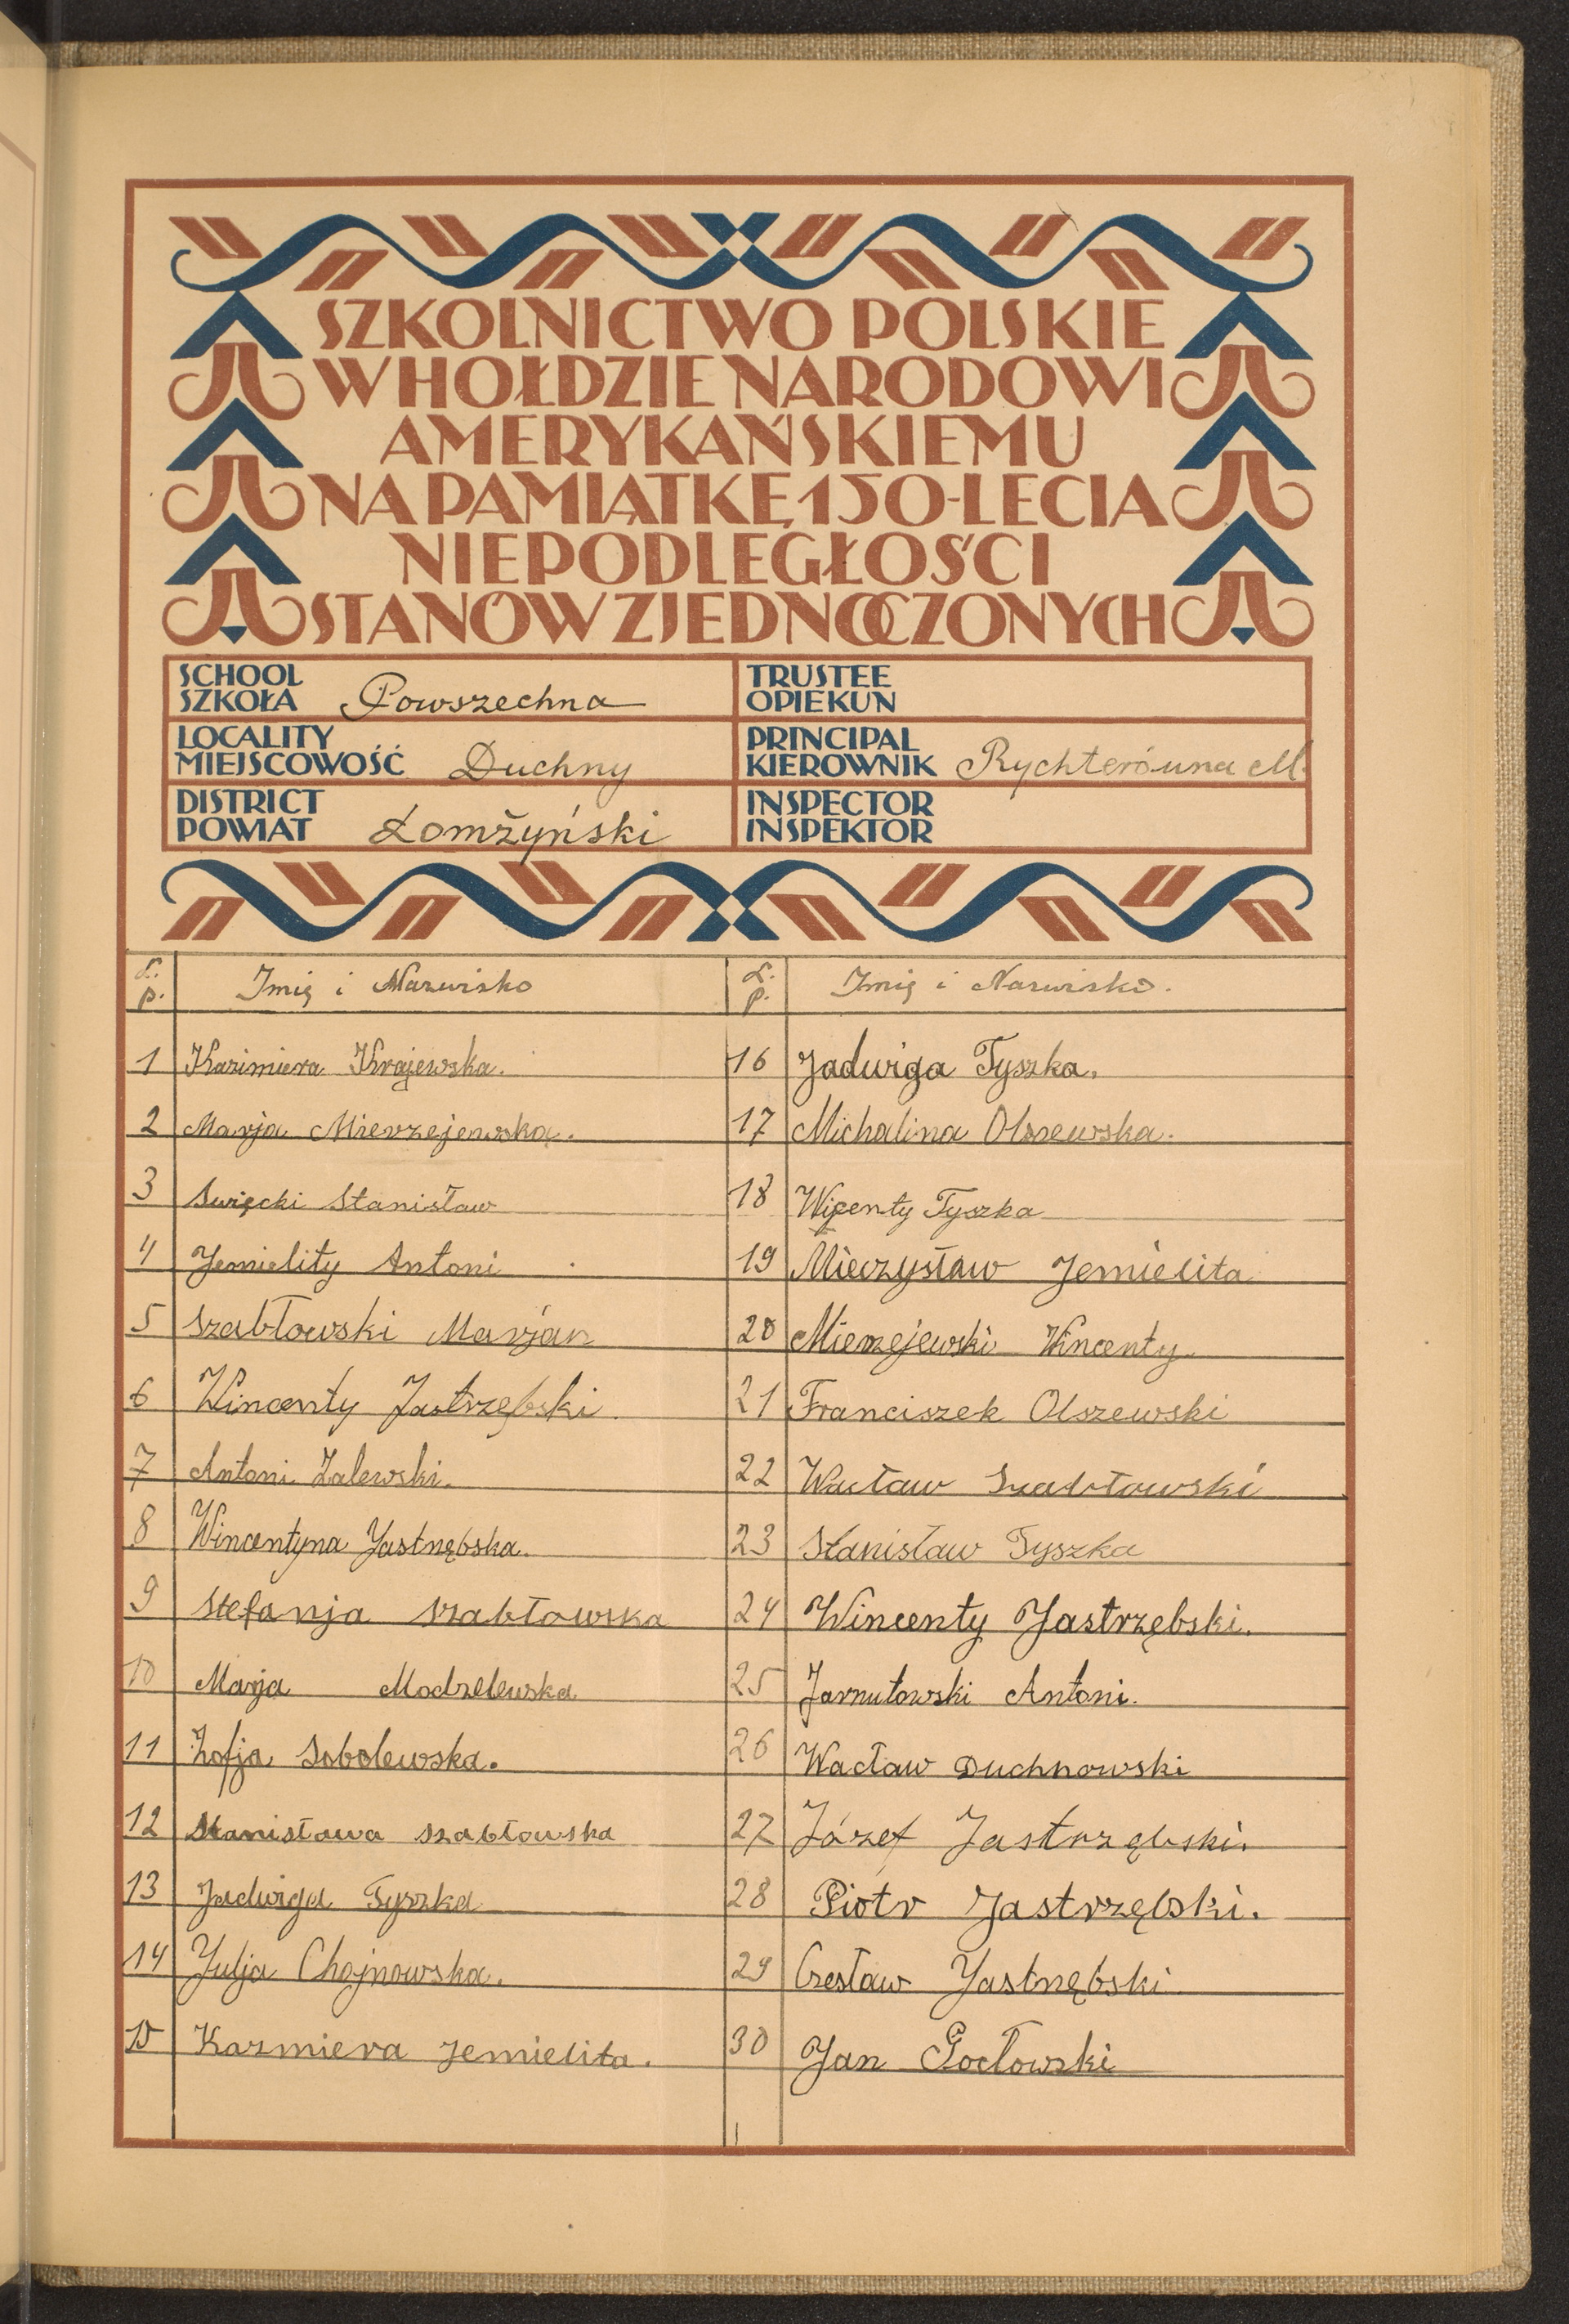 SZKOLNICTWO POLSKIE
W HOŁDZIE NARODOWI
AMERYKAŃSKIEMU
NA PAMIĄTKĘ 150-LECIA
NIEPODLEGŁOŚCI
STANÓW ZJEDNOCZONYCH
SCHOOL
SZKOŁA Powszechna
TRUSTEE
OPIEKUN
LOCALITY
MIEJSCOWOŚĆ Duchny
PRINCIPAL
KIEROWNIK Rychterówna M.
DISTRICT
POWIAT Łomżyński
INSPECTOR
INSPEKTOR
L. p. Imię i Nazwisko
1 Kazimiera Krajewska.
2 Marja Mierzejewska.
3 Swięcki Stanisław
4 Jemielity Antoni
5 Szabłowski Marjan
6 Wincenty Jastrzębski.
7 Antoni Zalewski.
8 Wincentyna Jastrzębska.
9 Stefanja Szabłowska
10 Marja Modzelewska
11 Zofja Sobolewska.
12 Stanisława Szabłowska
13 Jadwiga Tyszka
14 Julja Chojnowska.
15 Kazmiera Jemielita.
L. p. Imię i Nazwisko.
16 Jadwiga Tyszka.
17 Michalina Olszewska.
18 Wicenty Tyszka
19 Mieczysław Jemielita
20 Mierzejewski Wincenty
21 Franciszek Olszewski
22 Wacław Szabłowski
23 Stanisław Tyszka
24 Wincenty Jastrzębski.
25 Jarnutowski Antoni.
26 Wacław Duchnowski
27 Józef Jastrzębski.
28 Piotr Jastrzębski.
29 Czesław Jastrzębski
30 Jan Gocłowski